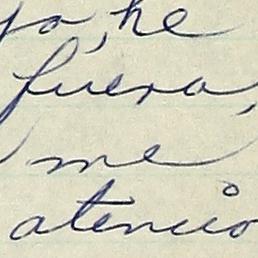 ya, he
fuera,
me
atenció